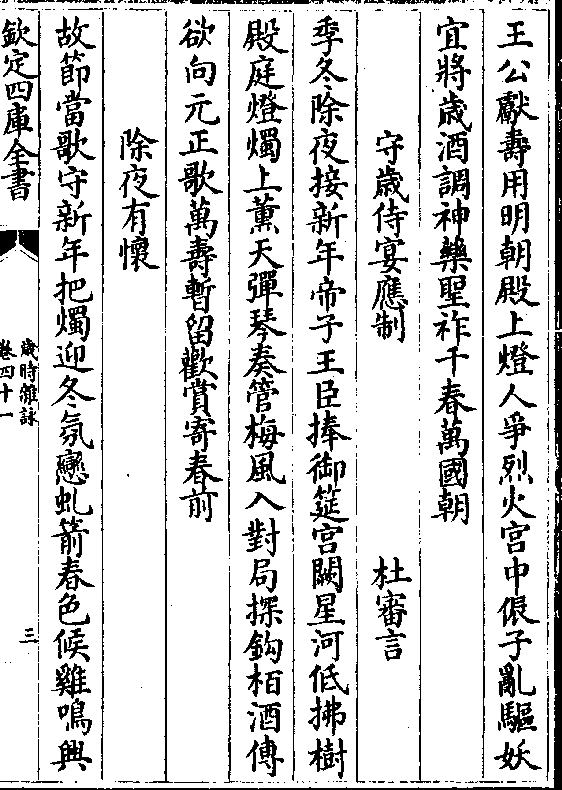 王公獻壽用明朝殿上燈人爭烈火宫中侲子亂驅妖
宜將歲酒調神藥聖祚千春萬國朝
守歲侍宴應制
杜審言
季冬除夜接新年帝子王臣捧御筵宫闕星河低拂樹
殿庭燈燭上薰天彈琴奏管梅風入對局探鈎柏酒傳
欲向元正歌萬壽暫留歡賞寄春前
除夜有懷
故節當歌守新年把燭迎冬氛戀虬箭春色候雞鳴興
欽定四庫全書
歲時雜詠
卷四十一
三